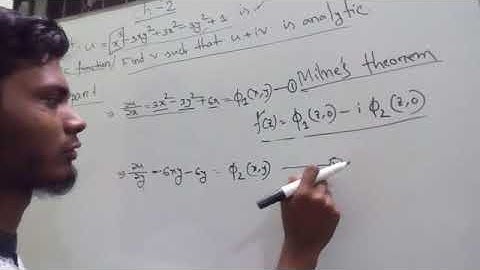 h-2
u = x³-3xy²+3x²-3y²+1 is
function/ Find v such that u+iv is analytic
part
⇒ ∂u/∂x = 3x²-3y²+6x = φ₁(x,y) — ① Milne's theorem
f'(z) = φ₁(z,0) - i φ₂(z,0)
⇒ ∂u/∂y = -6xy-6y = φ₂(x,y)